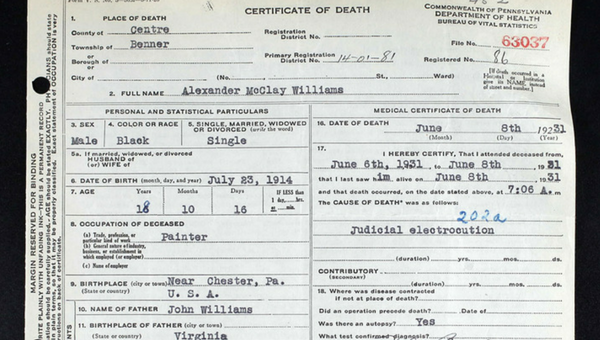 CERTIFICATE OF DEATH
COMMONWEALTH OF PENNSYLVANIA
DEPARTMENT OF HEALTH
BUREAU OF VITAL STATISTICS
1. PLACE OF DEATH
County of Centre
Township of Benner
or
Borough of
or
City of
Registration
District No.
Primary Registration
District No. 14-01-81
File No. 63037
Registered No. 86
(No. St., Ward)
[If death occurred in a
Hospital or Institution
give its NAME, instead
of street and number.]
2. FULL NAME Alexander McClay Williams
PERSONAL AND STATISTICAL PARTICULARS
3. SEX
Male
4. COLOR OR RACE
Black
5. SINGLE, MARRIED, WIDOWED
OR DIVORCED (write the word)
Single
5a. If married, widowed, or divorced
HUSBAND of
(or) WIFE of
6. DATE OF BIRTH (month, day, and year) July 23, 1914
7. AGE Years Months Days IF LESS than
18 10 16
1 day, hrs.
or min.
8. OCCUPATION OF DECEASED
(a) Trade, profession, or
particular kind of work Painter
(b) General nature of industry,
business, or establishment in
which employed (or employer)
(c) Name of employer
9. BIRTHPLACE (city or town) Near Chester, Pa.
(State or country) U. S. A.
10. NAME OF FATHER John Williams
11. BIRTHPLACE OF FATHER (city or town)
(State or country) Virginia
MEDICAL CERTIFICATE OF DEATH
16. DATE OF DEATH
June 8th 1931
(Month) (Day) (Year)
17.
I HEREBY CERTIFY, That I attended deceased from
June 6th, 1931 to June 8th 1931
that I last saw him alive on June 8th 1931
and that death occurred, on the date stated above, at 7:06 A.m.
The CAUSE OF DEATH* was as follows:
202a
Judicial electrocution
(duration) yrs. mos. ds.
CONTRIBUTORY
(SECONDARY)
(duration) yrs. mos. ds.
18. Where was disease contracted
if not at place of death?
Did an operation precede death? Date of
Was there an autopsy? Yes
What test confirmed diagnosis?
MARGIN RESERVED FOR BINDING
WRITE PLAINLY WITH UNFADING INK—THIS IS A PERMANENT RECORD